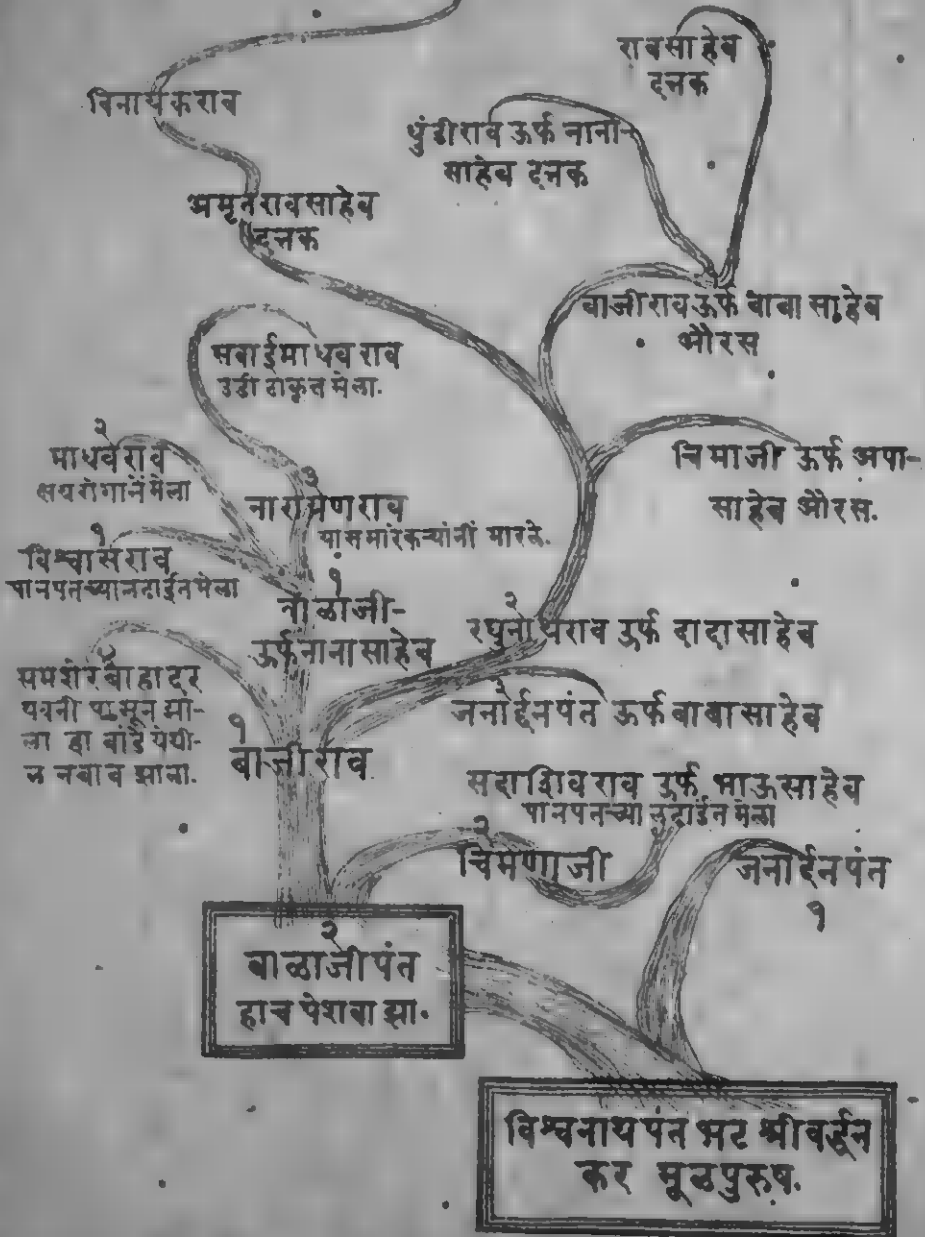 रावसाहेब
दत्तक
विनायकराव
धुंडीराव ऊर्फ नाना-
साहेब दत्तक
अमृतरावसाहेब
दत्तक
बाजीराव ऊर्फ बाबासाहेब
औरस
सवाईमाधवराव
उडी टाकून मेला.
२
माधवराव
क्षयरोगानें मेला
चिमाजी ऊर्फ अपा-
साहेब औरस.
३
नारायणराव
यास मारेकऱ्यांनीं मारले.
१
विश्वासराव
पानपतच्या लढाईत मेला
१
बाळाजी-
ऊर्फ नानासाहेब
२
रघुनाथराव उर्फ दादासाहेब
समशेर बाहादर
यवनी पासून झा-
ला हा बांदे येथी-
ल नबाब झाला.
जनार्दनपंत ऊर्फ बाबासाहेब
१
बाजीराव
सदाशिवराव उर्फ भाऊसाहेब
पानपतच्या लढाईत मेला
२
चिमणाजी
जनार्दनपंत
१
२
बाळाजीपंत
हाच पेशवा झा.
विश्वनाथपंत भट श्रीवर्द्धन
कर मूळपुरुष.